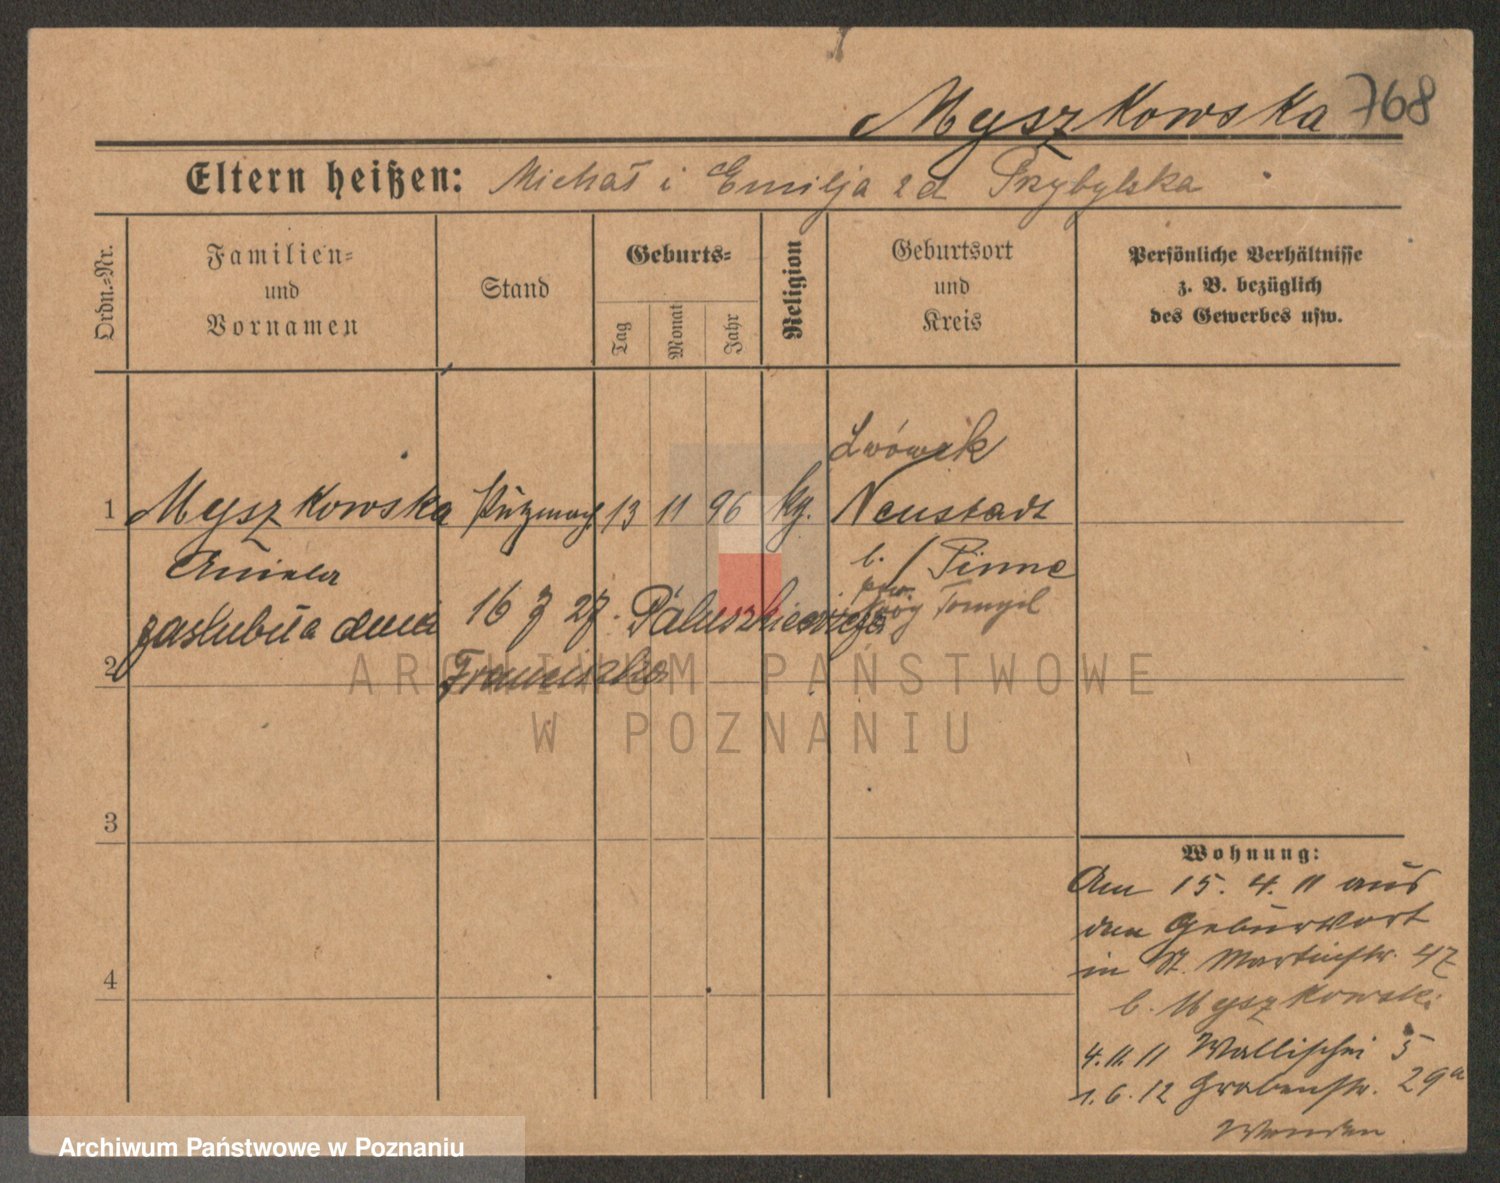 Myszkowska 768
Eltern heißen: Michał i Emilja zd Przybylska
Ordn.=Nr.
Familien=
und
Vornamen
Stand
Geburts=
Tag
Monat
Jahr
Religion
Geburtsort
und
Kreis
Persönliche Verhältnisse
z. B. bezüglich
des Gewerbes usw.
Lwówek
1 Myszkowska Putzmach 13 11 96 kg. Neustadt
b. / Pinne
Aniela
pow. Nowy Tomyśl
zaślubiła dnia 16 7 27. Paluszkiewicza
2 Franciszka
3
4
Wohnung:
Am 15. 4. 11 aus
dem Geburtsort
in St. Martinstr. 47
b. Myszkowski
4. 11. 11 Wallischei 5
1. 6. 12 Grabenstr. 29a
ARCHIWUM PAŃSTWOWE
W POZNANIU
Archiwum Państwowe w Poznaniu